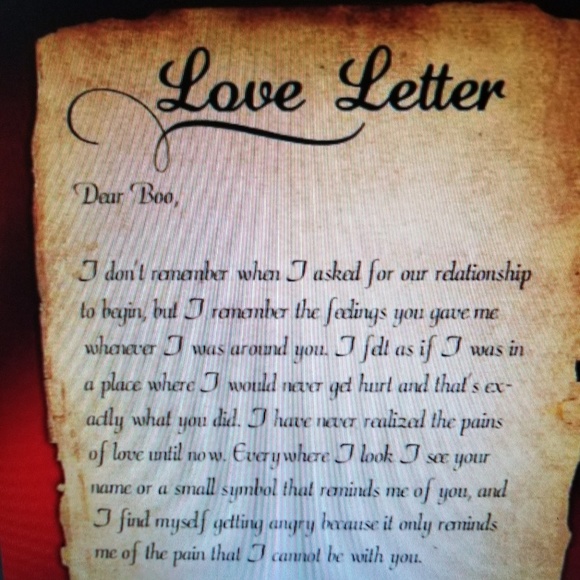 Love Letter
Dear Boo,
I don't remember when I asked for our relationship
to begin, but I remember the feelings you gave me
whenever I was around you. I felt as if I was in
a place where I would never get hurt and that's ex-
actly what you did. I have never realized the pains
of love until now. Everywhere I look I see your
name or a small symbol that reminds me of you, and
I find myself getting angry because it only reminds
me of the pain that I cannot be with you.